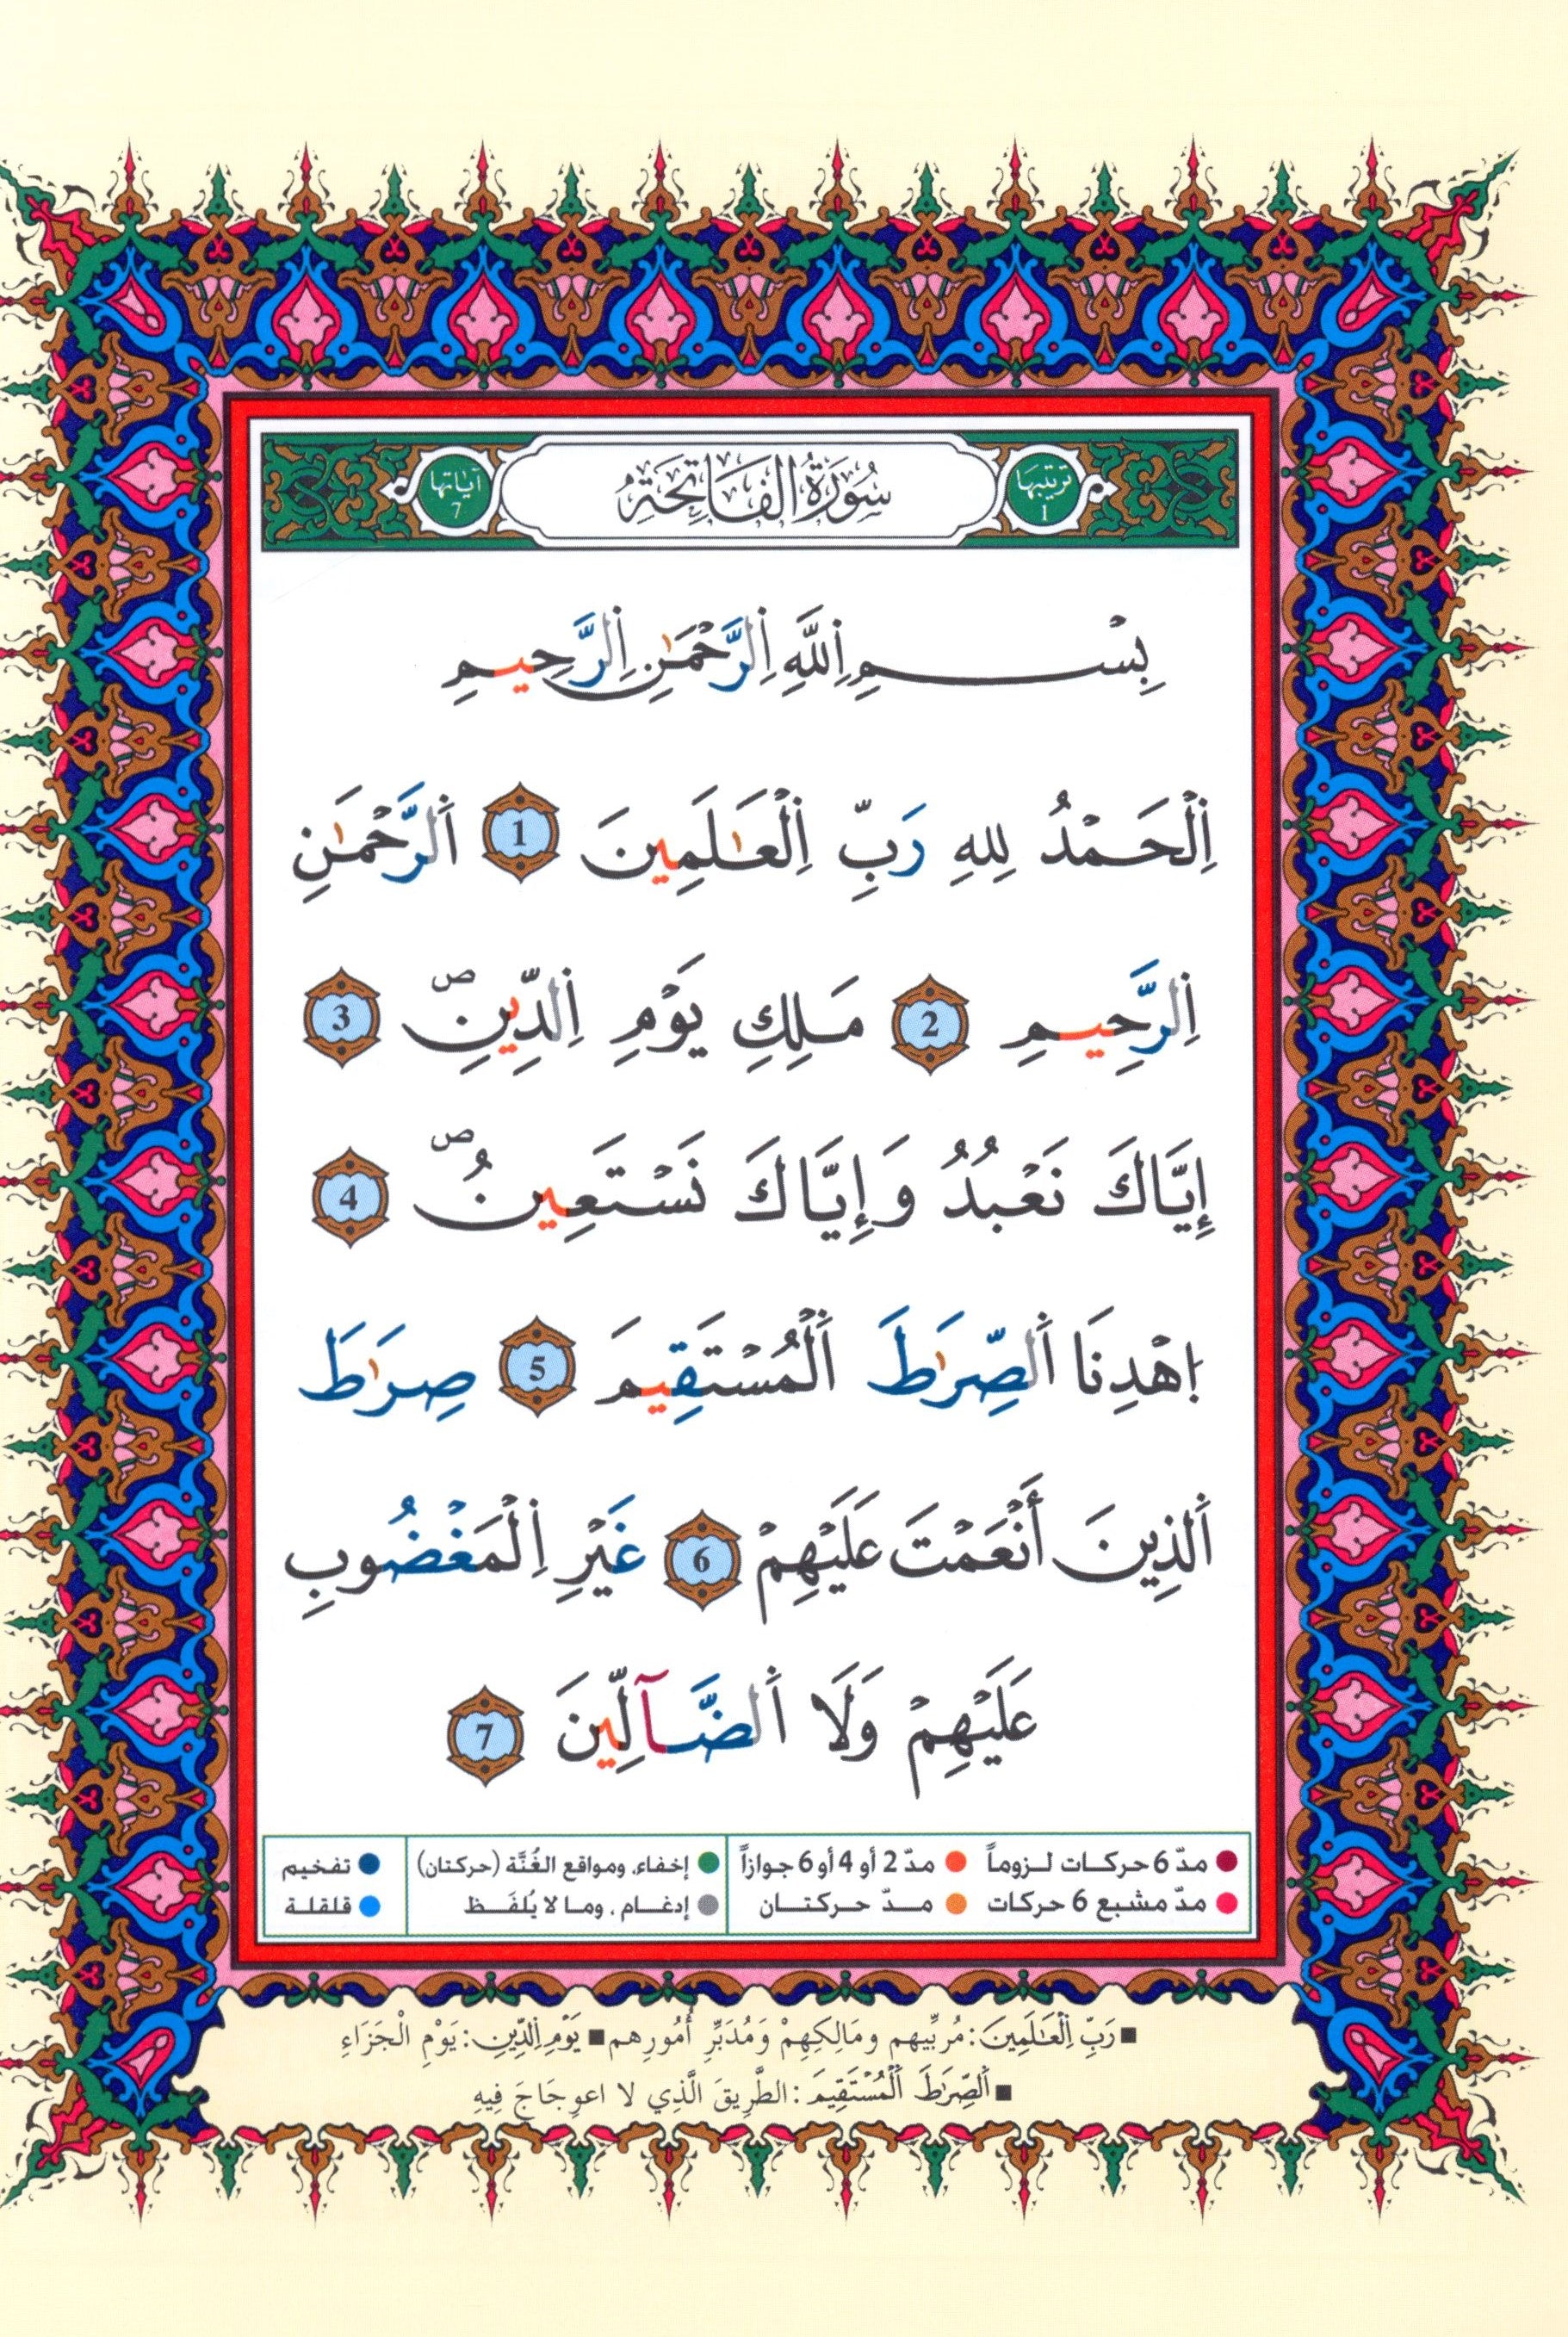 ترتيبها 1 سُورَةُ الْفَاتِحَةِ آياتها 7
بِسْمِ اِ۬للَّهِ اِ۬لرَّحْمَٰنِ اِ۬لرَّحِيمِ
اِ۬لْحَمْدُ لِلهِ رَبِّ اِ۬لْعَٰلَمِينَ 1 اَ۬لرَّحْمَٰنِ
اِ۬لرَّحِيمِ 2 مَلِكِ يَوْمِ اِ۬لدِّينِۖ 3
إِيَّاكَ نَعْبُدُ وَإِيَّاكَ نَسْتَعِينُۖ 4
اِ۪هْدِنَا اَ۬لصِّرَٰطَ اَ۬لْمُسْتَقِيمَ 5 صِرَٰطَ
اَ۬لذِينَ أَنْعَمْتَ عَلَيْهِمْ 6 غَيْرِ اِ۬لْمَغْضُوبِ
عَلَيْهِمْ وَلَا اَ۬لضَّآلِّينَ 7
● مدّ 6 حركات لزوماً ● مدّ 2 أو 4 أو 6 جوازاً ● إخفاء، ومواقع الغُنَّة (حركتان) ● تفخيم
● مدّ مشبع 6 حركات ● مدّ حركتان ● إدغام، وما لا يُلفَظ ● قلقلة
■ رَبِّ اِ۬لْعَٰلَمِينَ: مُرَبِّيهم ومَالِكِهِمْ وَمُدَبِّرِ أُمُورِهم ■ يَوْمِ اِ۬لدِّينِ: يَوْمِ الْجَزَاءِ
■ اَ۬لصِّرَٰطَ اَ۬لْمُسْتَقِيمَ: الطَّرِيقَ الَّذِي لا اعوِجَاجَ فِيهِ